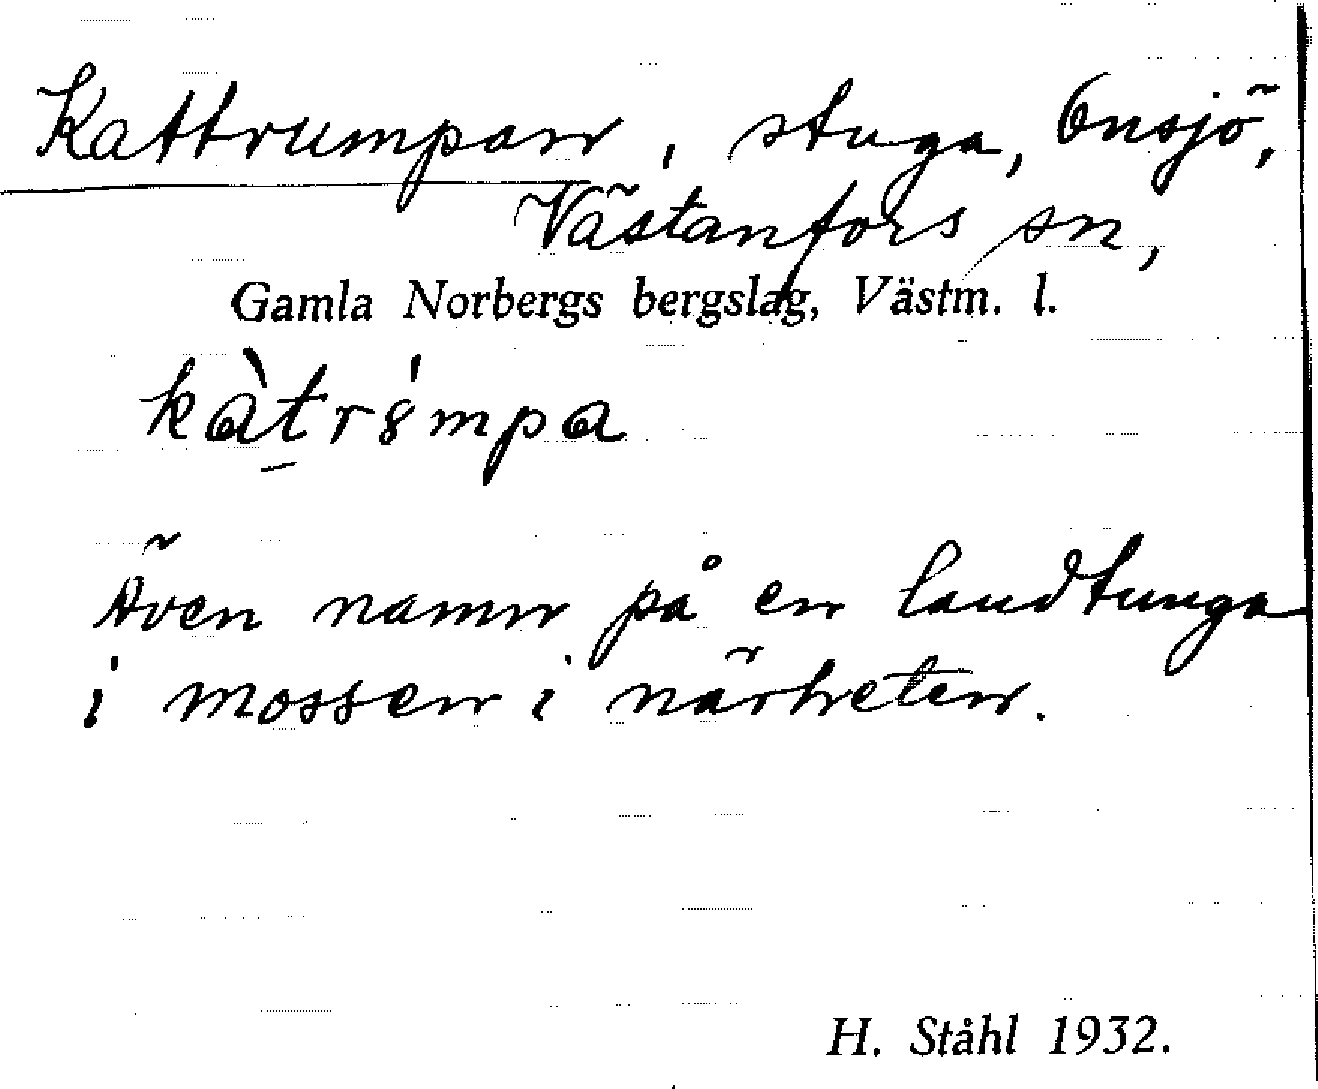 Kattrumpan, stuga, Onsjö,
Västanfors sn,
Gamla Norbergs bergslag, Västm. l.
kàtrȣ́mpa
Även namn på en landtunga
i mossen i närheten.
H. Ståhl 1932.